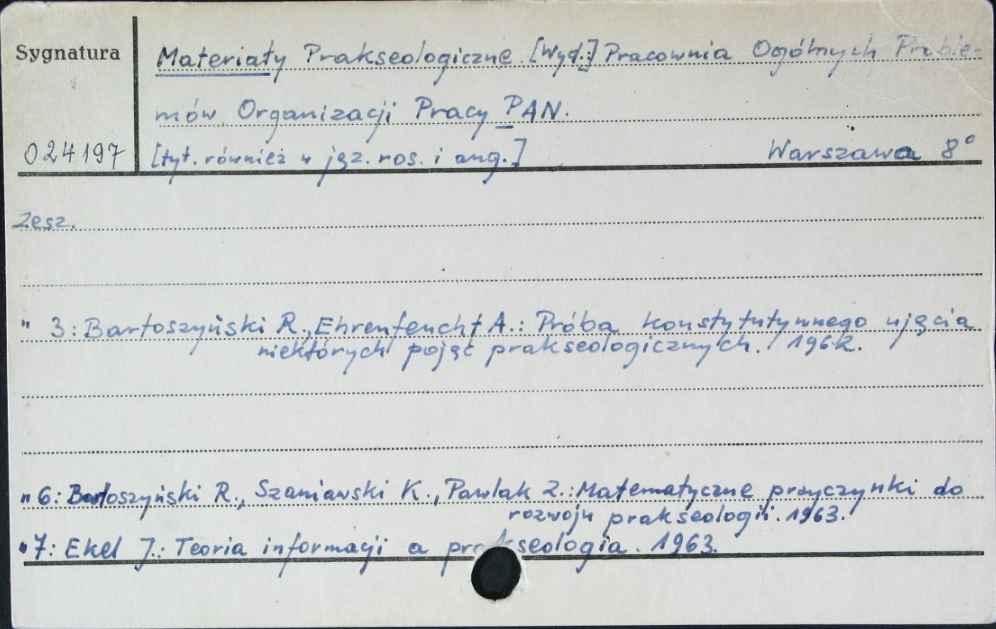 Sygnatura
Materiały Prakseologiczne. [Wyd.:] Pracownia Ogólnych Proble-
mów Organizacji Pracy PAN.
024197
[tyt. również w jęz. ros. i ang.] Warszawa 8°
Zesz.
" 3: Bartoszyński R., Ehrenfeucht A.: Próba konstytutywnego ujęcia
niektórych pojęć prakseologicznych. 1962.
" 6: Bartoszyński R., Szaniawski K., Pawlak Z.: Matematyczne przyczynki do
rozwoju prakseologii. 1963.
" 7: Ekel J.: Teoria informacji a prakseologia. 1963.